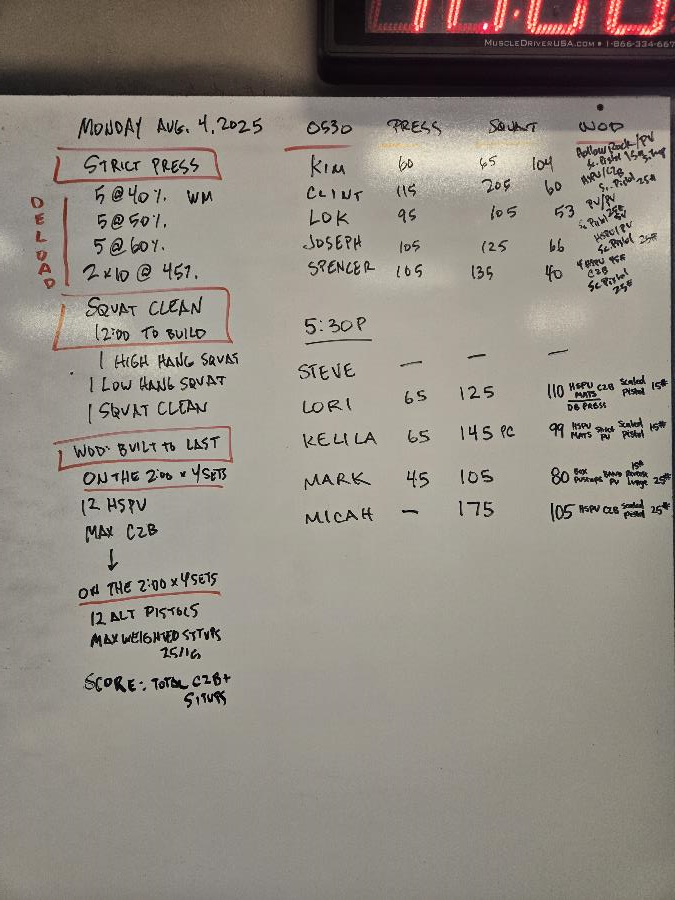 MUSCLEDRIVERUSA.COM • 1-866-334-667
MONDAY AUG. 4, 2025
STRICT PRESS
DELOAD
5 @ 40%. WM
5 @ 50%.
5 @ 60%.
2 x 10 @ 45%.
SQUAT CLEAN
12:00 TO BUILD
1 HIGH HANG SQUAT
1 LOW HANG SQUAT
1 SQUAT CLEAN
WOD: BUILT TO LAST
ON THE 2:00 x 4 SETS
12 HSPU
MAX C2B
↓
ON THE 2:00 x 4 SETS
12 ALT PISTOLS
MAX WEIGHTED SITUPS
25/16
SCORE: TOTAL C2B +
SITUPS
0530 PRESS SQUAT WOD
KIM 60 65 104 Hollow Rock/PV Sc. Pistol 15#
CLINT 115 205 60 HSPU/C2B Sc. Pistol 25#
LOK 95 105 53 PV/PV Sc Pistol 25#
JOSEPH 105 125 66 HSPU/PV Sc. Pistol 25#
SPENCER 105 135 40 HSPU C2B Sc Pistol 25#
5:30P
STEVE — — —
LORI 65 125 110 HSPU MATS DB PRESS C2B Scaled Pistol 15#
KELILA 65 145 PC 99 HSPU MATS Strict PU Scaled Pistol 15#
MARK 45 105 80 Box Pushups BAND PU 15# Reverse Lunge 25#
MICAH — 175 105 HSPU C2B Scaled Pistol 25#